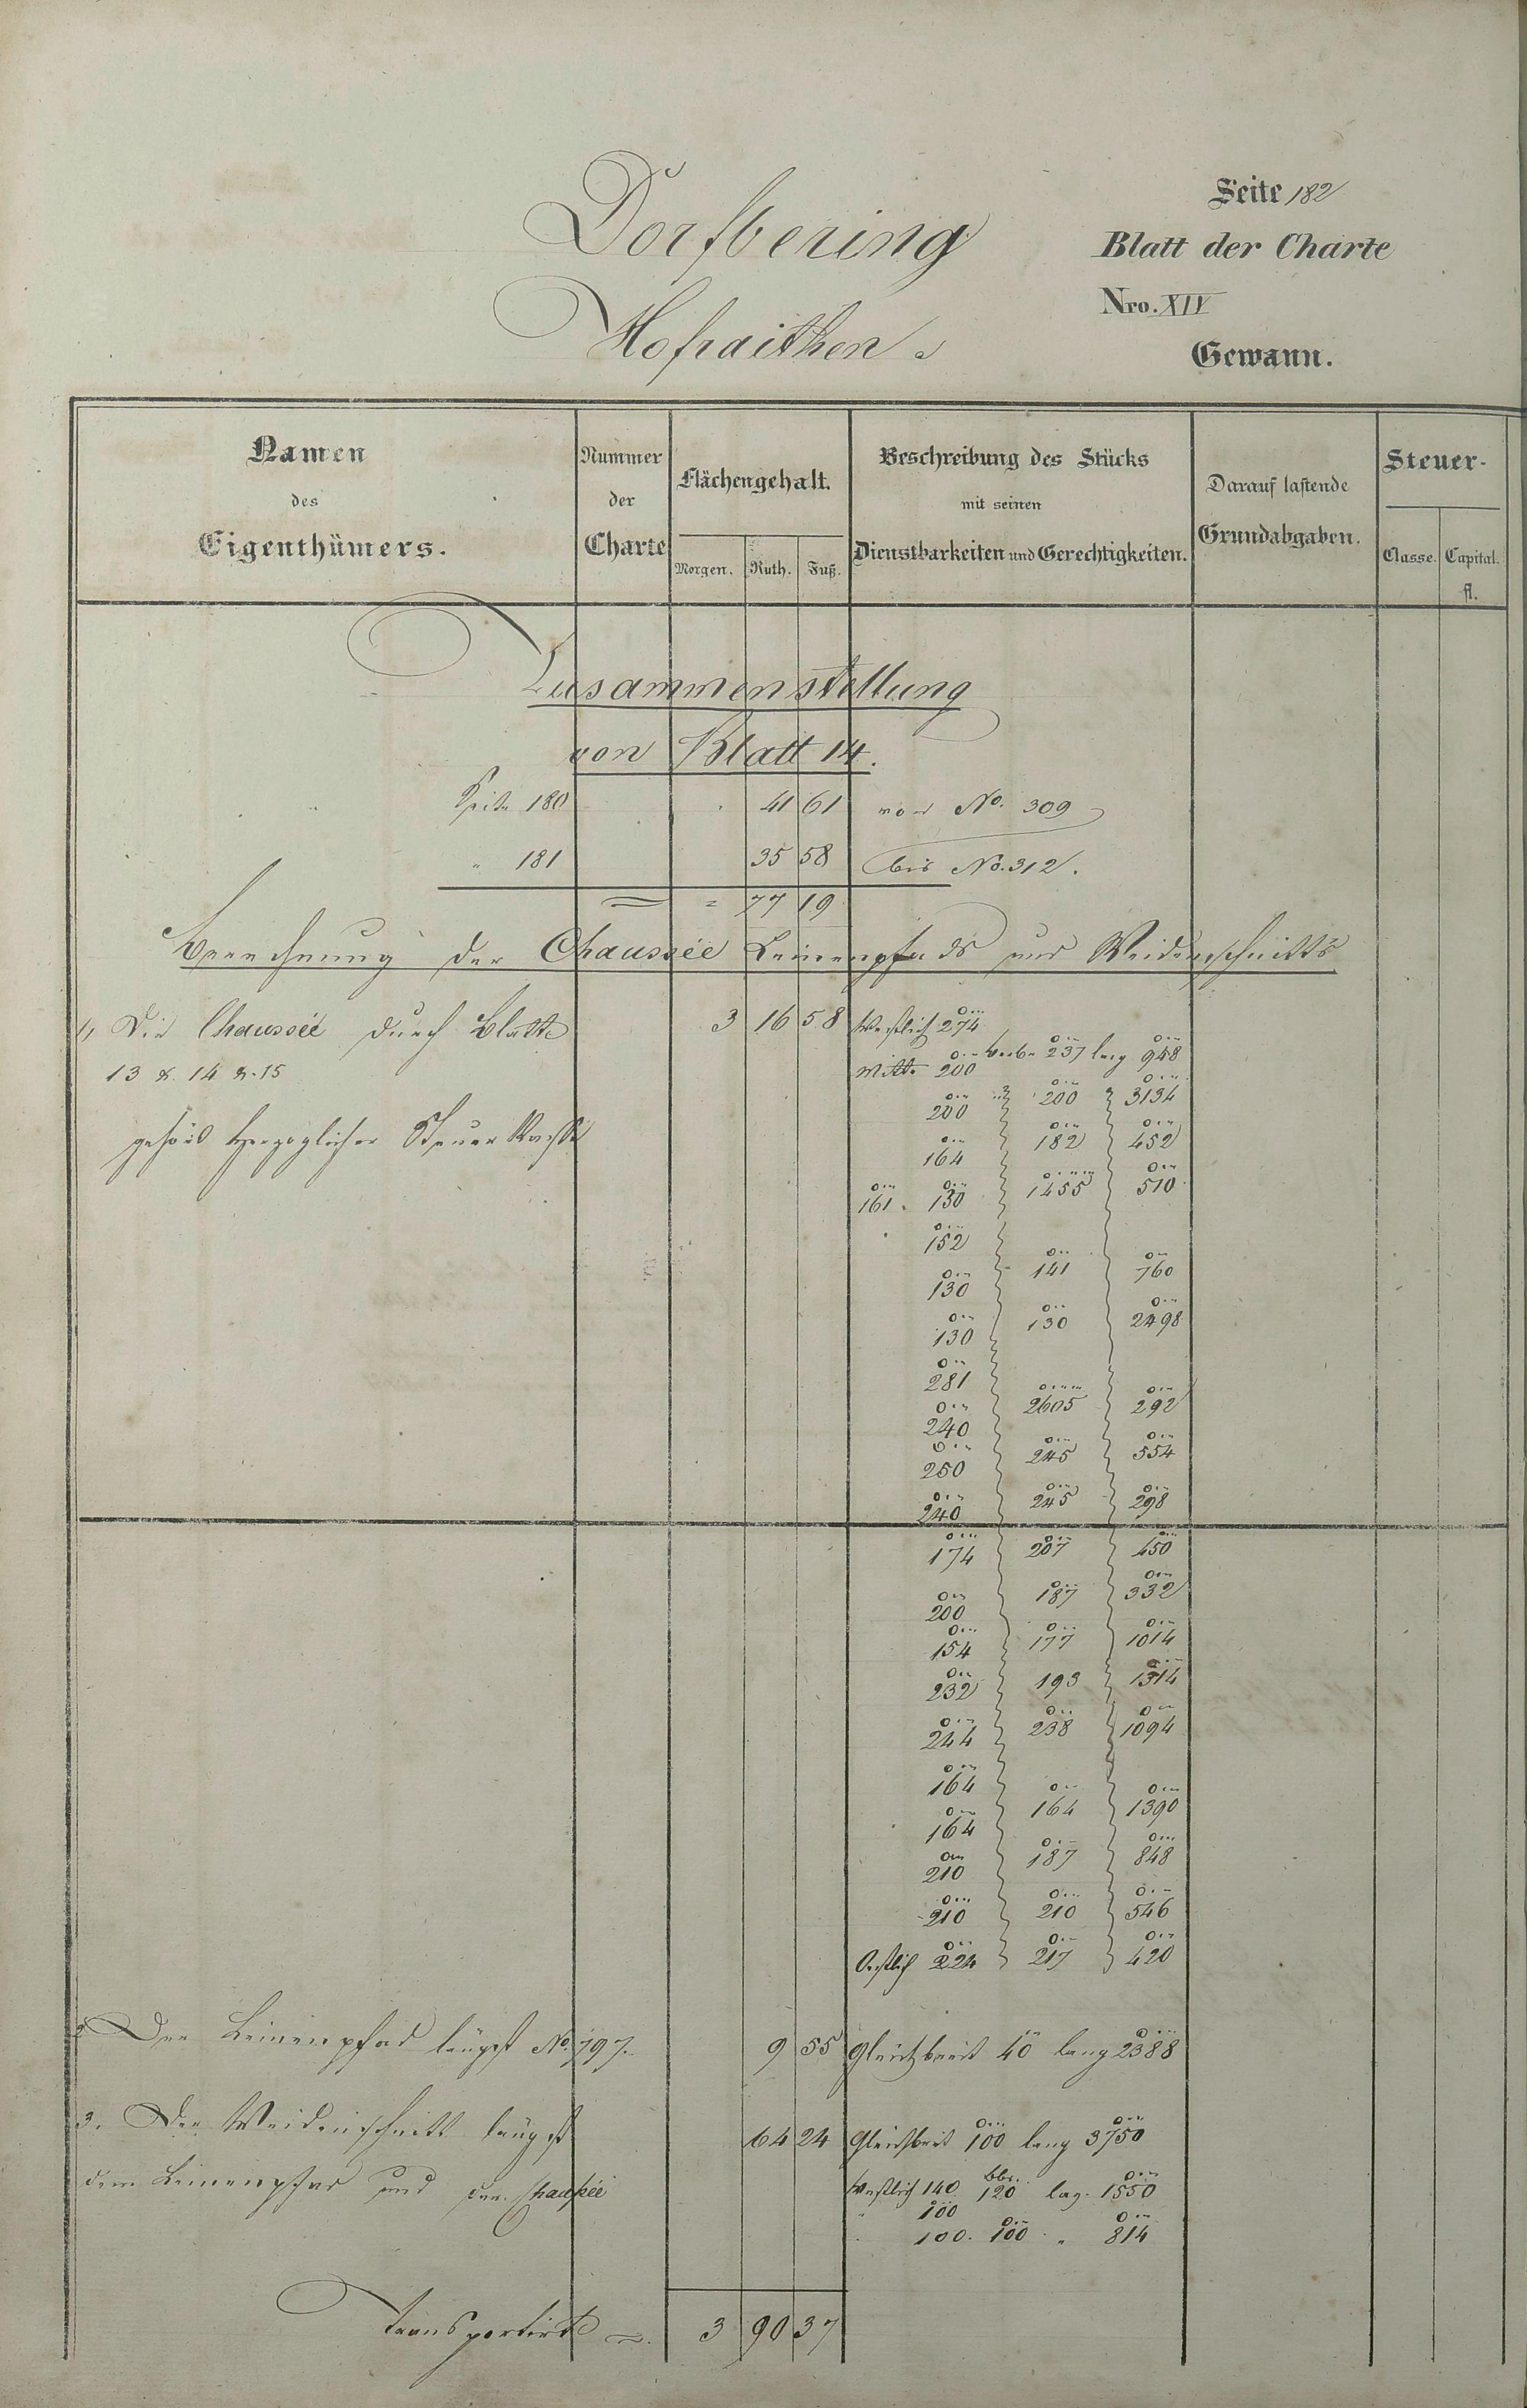 Seite 182
Dorfbering
Blatt der Charte
Nro. XIV
Hofraithen
Gewann.
Namen des Eigenthümers.
Nummer der Charte
Flächengehalt.
Morgen. Ruth. Fuß.
Beschreibung des Stücks mit seinen Dienstbarkeiten und Gerechtigkeiten.
Darauf lastende Grundabgaben.
Steuer-
Classe. Capital. fl.
Zusammenstellung
von Blatt 14.
Seite 180 41 61 von No. 309
" 181 35 58 bis No. 312.
= = 77 19
Berechnung der Chaussée Leinenpfads und Weidenschnitts
1, Die Chaussée durch Blatt 3 16 58 Westlich 274
13 &. 14 &. 15 Mitte 200 237 lang 948
200 200 3134
gehört Herzoglicher Steuer Kasse
164 182 452
161. 130 1455 510
152
130 141 760
130 130 2498
281
240 2605 292
250 245 554
240 245 298
174 207 450
200 187 332
154 177 1014
232 193 1314
244 238 1094
164
164 164 1390
210 187 848
210 210 546
Oestlich 224 217 420
2 Der Leinenpfad längst No. 197. 9 55 Gleichbreit 40 lang 2388
3. Der Weidenschnitt längst 64 24 Gleichbreit 100 lang 3750
dem Leinenpfad und der Chaussée Westlich 140 120 lag. 1550
" 100
100. 100 " 814
Transportirt = 3 90 37